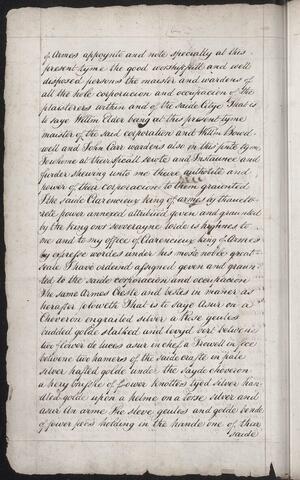 of Armes appoynte and note specially at this
present tyme the good worshipfull and well
disposed persons the maister and wardens of
all the hole corporacion and occupacion of the
plaisterers within and of the saide Citye That is
to saye Willm Elder being at this present tyme
maister of the said corporation and Willm Bowd
well and John Carr wardens also in this pnte tyme
To whome at their spciall sewte and Instaunce and
further shewing unto me theire authoritie and
power of their corporacion to them graunted
I the saide Clarencieux king of armes by thauctor
rete power annexed attributed given and graunted
by the king owr sovereyne lorde is highnes to
me and to my office of Clarencieux king of Armes
by expresse wordes under his moste noble great
seale I have ordeind assyned geven and graun
ted to the saide corporacion and occupacion
The same Armes Creste and bestes in maner as
herafter foloweth That is to saye Asur on a
Cheveron engrailed silver a Rose geules
budded golde stalked and levyd vert betwene
two flower de luces asur in chef a Trowell in fece
betwene two hamers of the saide crafte in pale
silver hafted golde under the sayde cheveron
a bery brusshe of fower knottes tyed silver han
dled golde upon a helme on a torse silver and
asur An arme the sleve geules and golde bende
of fower peces holding in the hande one of their
saide